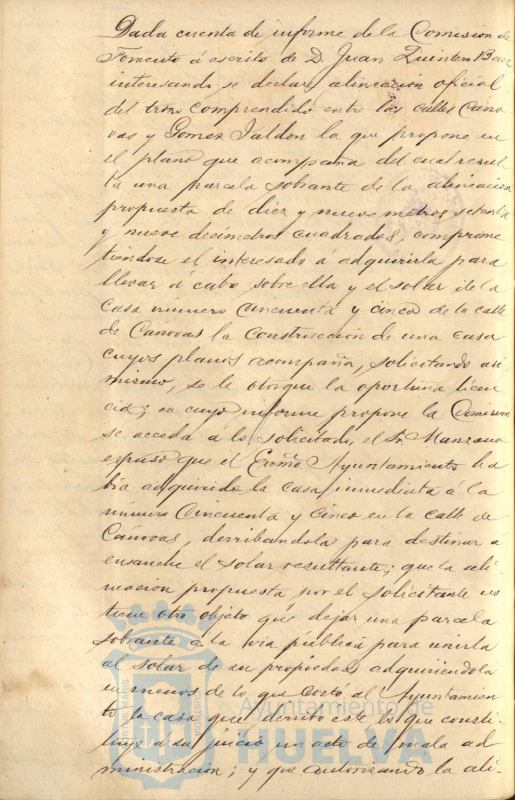 Dada cuenta de informe de la Comisión de
Fomento á escrito de D. Juan Quintero Báez
interesando se declare alineacion oficial
del trozo comprendido entre las calles Cáno
vas y Gomez Jaldon la que propone en
el plano que acompaña del cual resul
ta una parcela sobrante de la alineacion
propuesta de diez y nueve metros setenta
y nueve decímetros cuadrados, comprome
tiéndose el interesado a adquirirla para
llevar á cabo sobre ella y el solar de la
casa número cincuenta y cinco de la calle
de Cánovas la construcción de una casa
cuyos planos acompaña, solicitando asi
mismo, se le otorgue la oportuna licen
cia; en cuyo informe propone la Comision
se acceda á lo solicitado, el Sr. Manzano
expuso que el Excmo Ayuntamiento ha
bía adquirido la casa inmediata á la
número cincuenta y cinco en la calle de
Cánovas, derribándola para destinar a
ensanche el solar resultante; que la ali
neacion propuesta por el solicitante no
tiene otro objeto que dejar una parcela
sobrante a la via pública para unirla
al solar de su propiedad adquiriéndola
en menos de lo que costó al Ayuntamien
to la casa que derribó este lo que consti
tuye a su juicio un acto de mala ad
ministración; y que autorizando la ali-
Ayuntamiento de
HUELVA